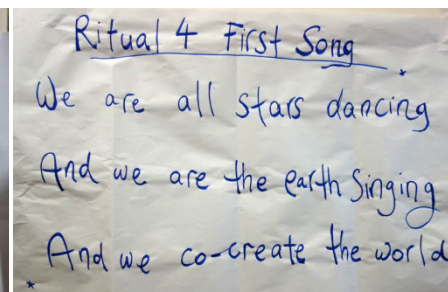 Ritual 4 First Song
We are all stars dancing
And we are the earth Singing
And we co-create the world